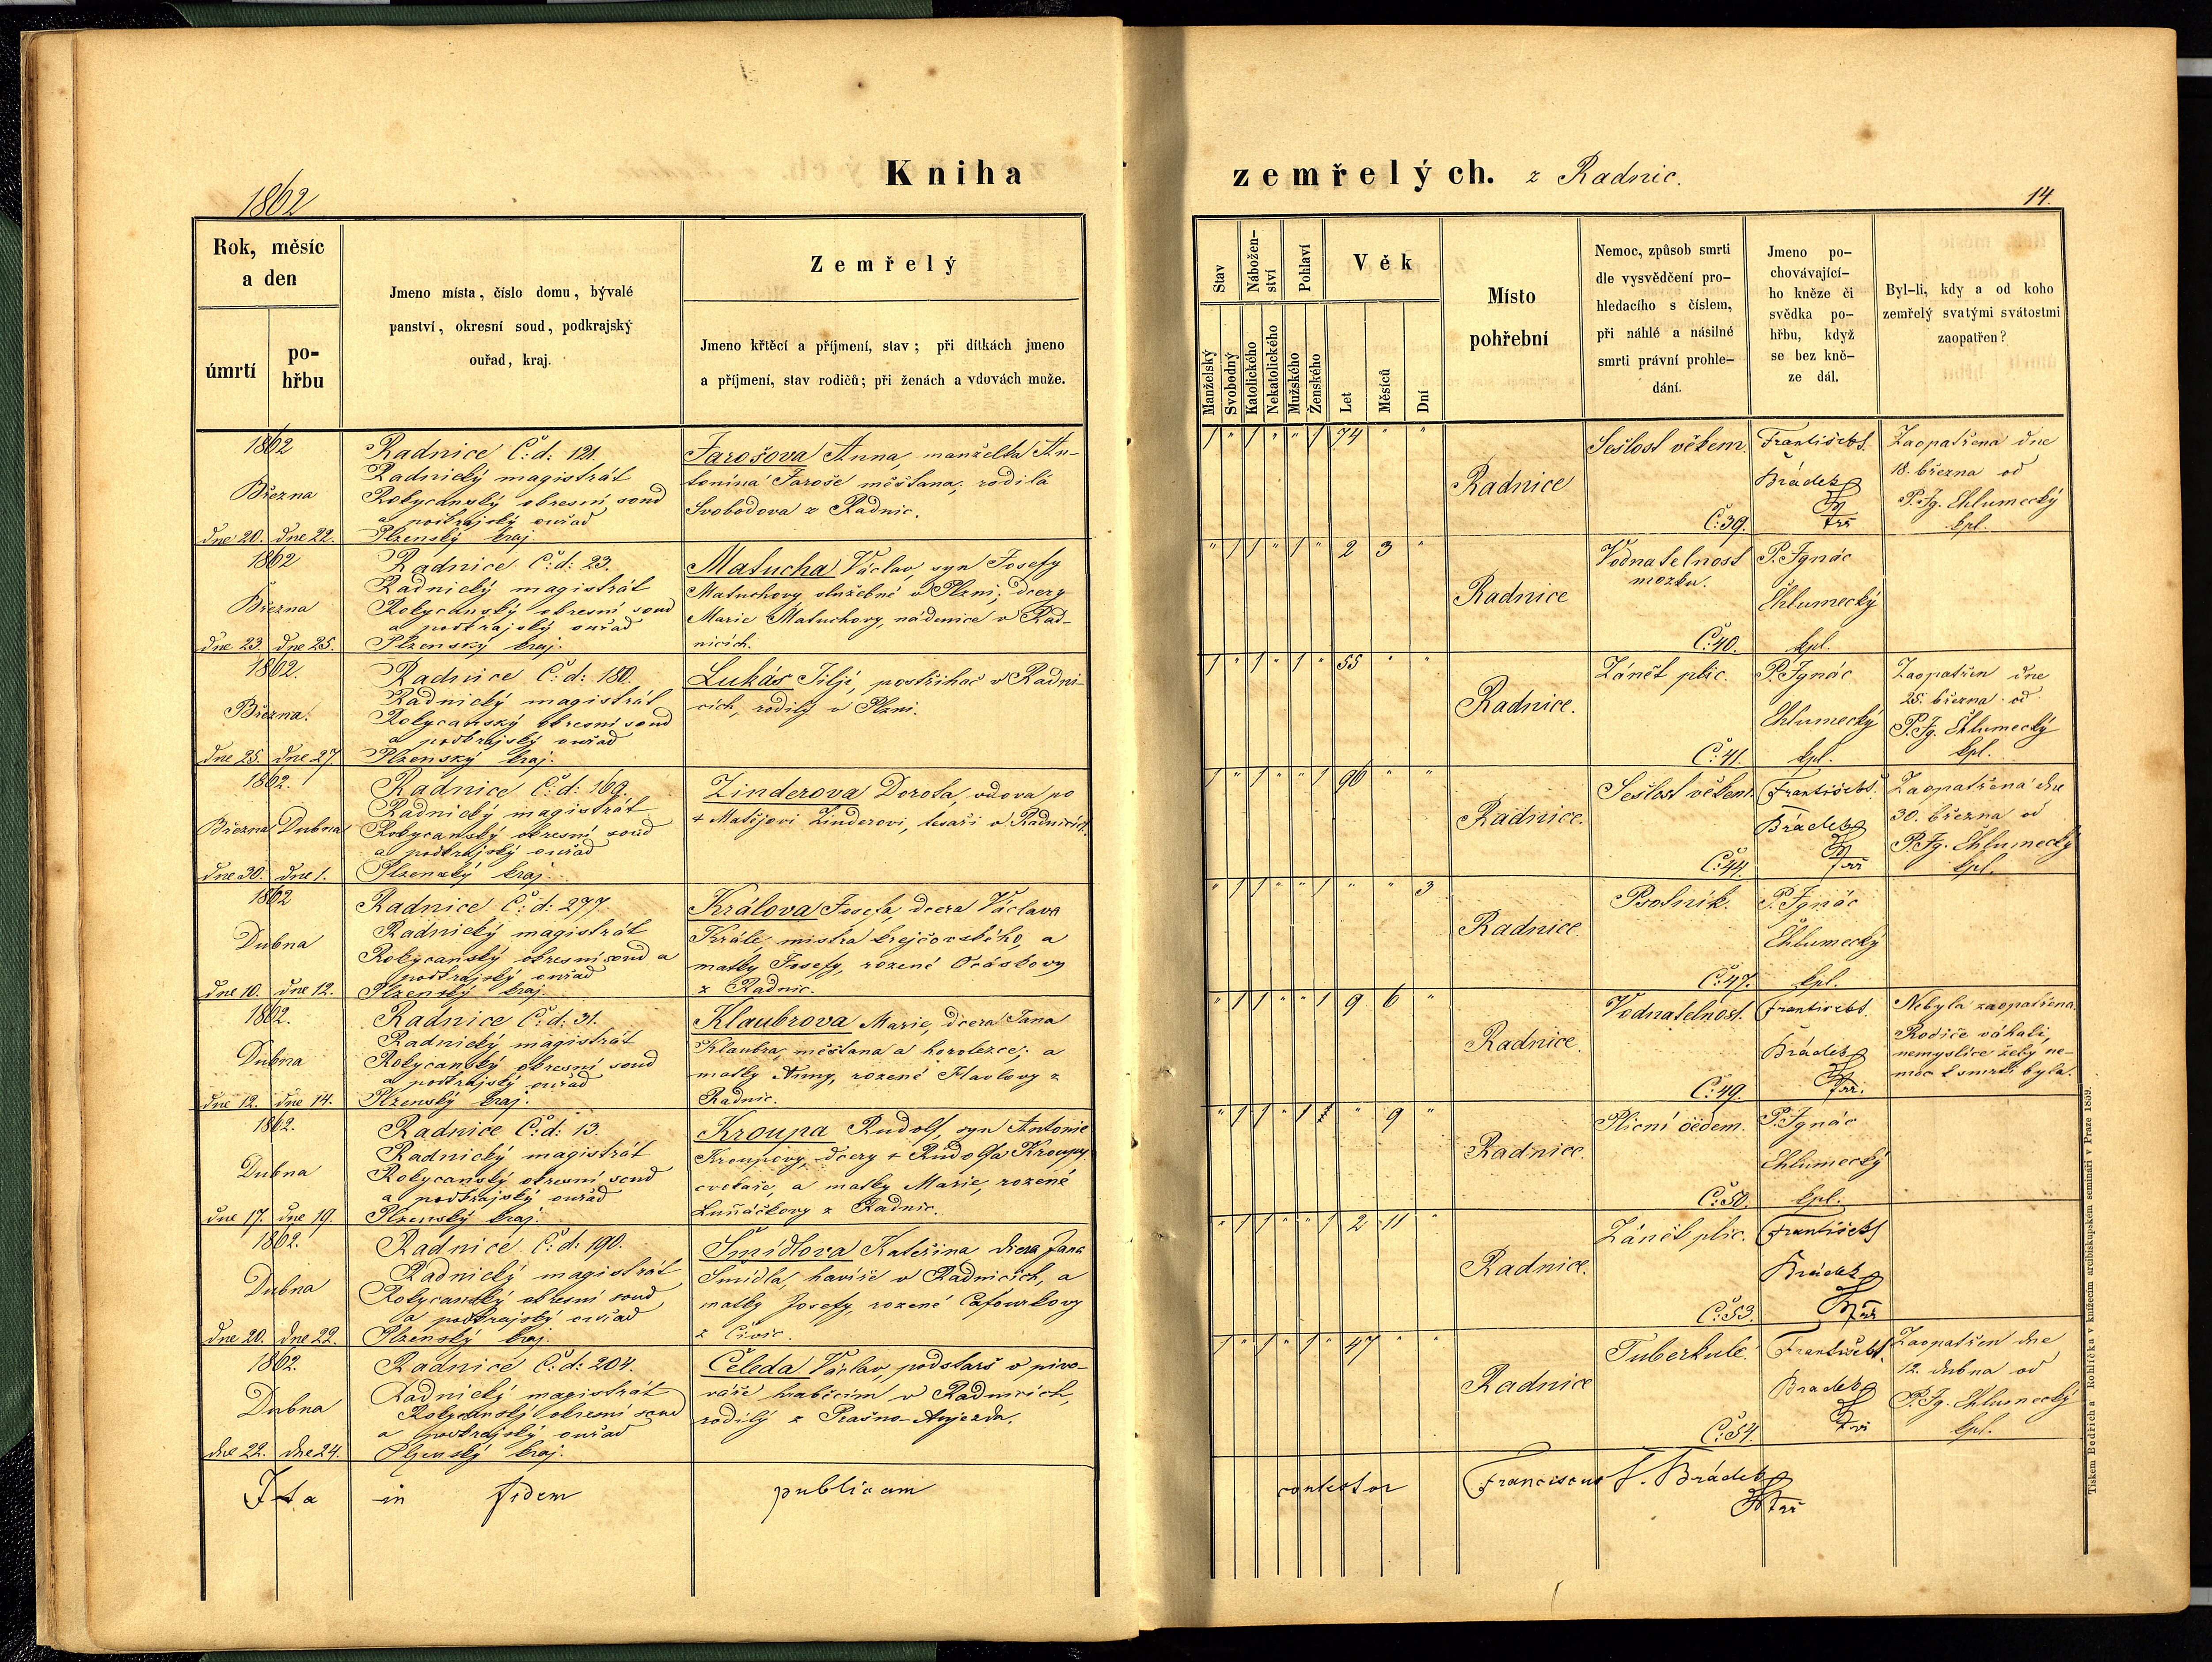 Kniha
1862
Rok, měsíc
a den
úmrtí
po-
hřbu
Jmeno místa, číslo domu, bývalé
panství, okresní soud, podkrajský
ouřad, kraj.
Zemřelý
Jmeno křtěcí a příjmení, stav; při dítkách jmeno
a příjmení, stav rodičů; při ženách a vdovách muže.
1862
Března
dne 20. dne 22.
Radnice Č: d: 121.
Radnický magistrát
Rokycanský okresní soud
a podkrajský ouřad
Plzenský kraj.
Jarošova Anna, manželka An-
tonína Jaroše měštana; rodilá
Svobodova z Radnic.
1862
Března
dne 23. dne 25.
Radnice Č: d: 23.
Radnický magistrát
Rokycanský okresní soud
a podkrajský ouřad
Plzenský kraj.
Matucha Václav, syn Josefy
Matuchovy služebné v Plzni; dcery
Marie Matuchovy, nádenice v Rad-
nicích.
1862.
Března.
dne 25. dne 27.
Radnice Č: d: 180.
Radnický magistrát
Rokycanský okresní soud
a podkrajský ouřad
Plzenský kraj.
Lukás Jiljí, postřihač v Radni-
cích, rodilý v Plzni.
1862.
Března Dubna
dne 30. dne 1.
Radnice Č: d: 169.
Radnický magistrát
Rokycanský okresní soud
a podkrajský ouřad
Plzenský kraj.
Zinderova Dorota, vdova po
+ Matějovi Zinderovi, tesaři v Radnicích.
1862
Dubna
dne 10. dne 12.
Radnice Č: d: 277.
Radnický magistrát
Rokycanský okresní soud a
podkrajský ouřad
Plzenský kraj.
Králova Josefa, dcera Václava
Krále, mistra krejčovského, a
matky Josefy, rozené Ocáskovy
z Radnic.
1862.
Dubna
dne 12. dne 14.
Radnice Č: d: 31.
Radnický magistrát
Rokycanský okresní soud
a podkrajský ouřad
Plzenský kraj.
Klaubrova Marie, dcera Jana
Klaubra, měštana a horolezce; a
matky Anny, rozené Havlovy z
Radnic.
1862.
Dubna
dne 17. dne 19.
Radnice Č: d: 13.
Radnický magistrát
Rokycanský okresní soud
a podkrajský ouřad
Plzenský kraj.
Kroupa Rudolf, syn Antonie
Kroupovy, dcery + Rudolfa Kroupy
cvokaře, a matky Marie, rozené
Luňáčkovy z Radnic.
1862.
Dubna
dne 20. dne 22.
Radnice Č: d: 190.
Radnický magistrát
Rokycanský okresní soud
a podkrajský ouřad
Plzenský kraj.
Šmídlova Kateřina dcera Jana
Šmídla, havíře v Radnicích, a
matky Josefy, rozené Cafourkovy
z Civic.
1862.
Dubna
dne 22. dne 24.
Radnice Č: d: 204.
Radnický magistrát
Rokycanský okresní soud
a podkrajský ouřad
Plzenský kraj.
Čeleda Václav, podstarš v pivo-
váře hraběcím v Radnicích,
rodilý z Prašno-Aujezda.
Ita in fidem publicam
zemřelých. z Radnic.
14.
Stav
Manželský
Svobodný
Nábožen-
ství
Katolického
Nekatolického
Pohlaví
Mužského
Ženského
Věk
Let
Měsíců
Dní
Místo
pohřební
Nemoc, způsob smrti
dle vysvědčení pro-
hledacího s číslem,
při náhlé a násilné
smrti právní prohle-
dání.
Jmeno po-
chovávající-
ho kněze či
svědka po-
hřbu, když
se bez kně-
ze dál.
Byl-li, kdy a od koho
zemřelý svatými svátostmi
zaopatřen?
1 " 1 " " 1 74 " "
Radnice
Sešlost věkem.
Č: 39.
František S.
Brádek
farář
Zaopatřena dne
18. března od
P. Ig. Chlumecký
kpl.
" 1 1 " 1 " 2 3 "
Radnice
Vodnatelnost
mozku.
Č: 40.
P. Ignác
Chlumecký
kpl.
1 " 1 " 1 " 55 " "
Radnice.
Zánět plic.
Č: 41.
P. Ignác
Chlumecký
kpl.
Zaopatřen dne
25. března od
P. Ig. Chlumecký
kpl.
1 " 1 " " 1 96 " "
Radnice.
Sešlost věkem.
Č: 44.
František S.
Brádek
farář
Zaopatřena dne
30. března od
P. Ig. Chlumecký
kpl.
" 1 1 " " 1 " " 3
Radnice.
Psotník.
Č: 47.
P. Ignác
Chlumecký
kpl.
" 1 1 " " 1 9 6 "
Radnice.
Vodnatelnost.
Č: 49.
František S.
Brádek
farář.
Nebyla zaopatřena.
Rodiče váhali,
nemyslíce žeby ne-
moc k smrti byla.
" 1 1 " 1 " 9 "
Radnice.
Plicní oedem.
Č: 50.
P. Ignác
Chlumecký
kpl.
" 1 1 " " 1 2 11 "
Radnice.
Zánět plic.
Č: 53.
František S
Brádek
farář
1 " 1 " 1 " 47 " "
Radnice
Tuberkule.
Č: 54.
František S.
Bradek
farář
Zaopatřen dne
12. dubna od
P. Ig. Chlumecký
kpl.
contestor Franciscus S. Brádek
farář
Tiskem Bedřicha Rohlíčka v knížecím arcibiskupském semináři v Praze 1859.